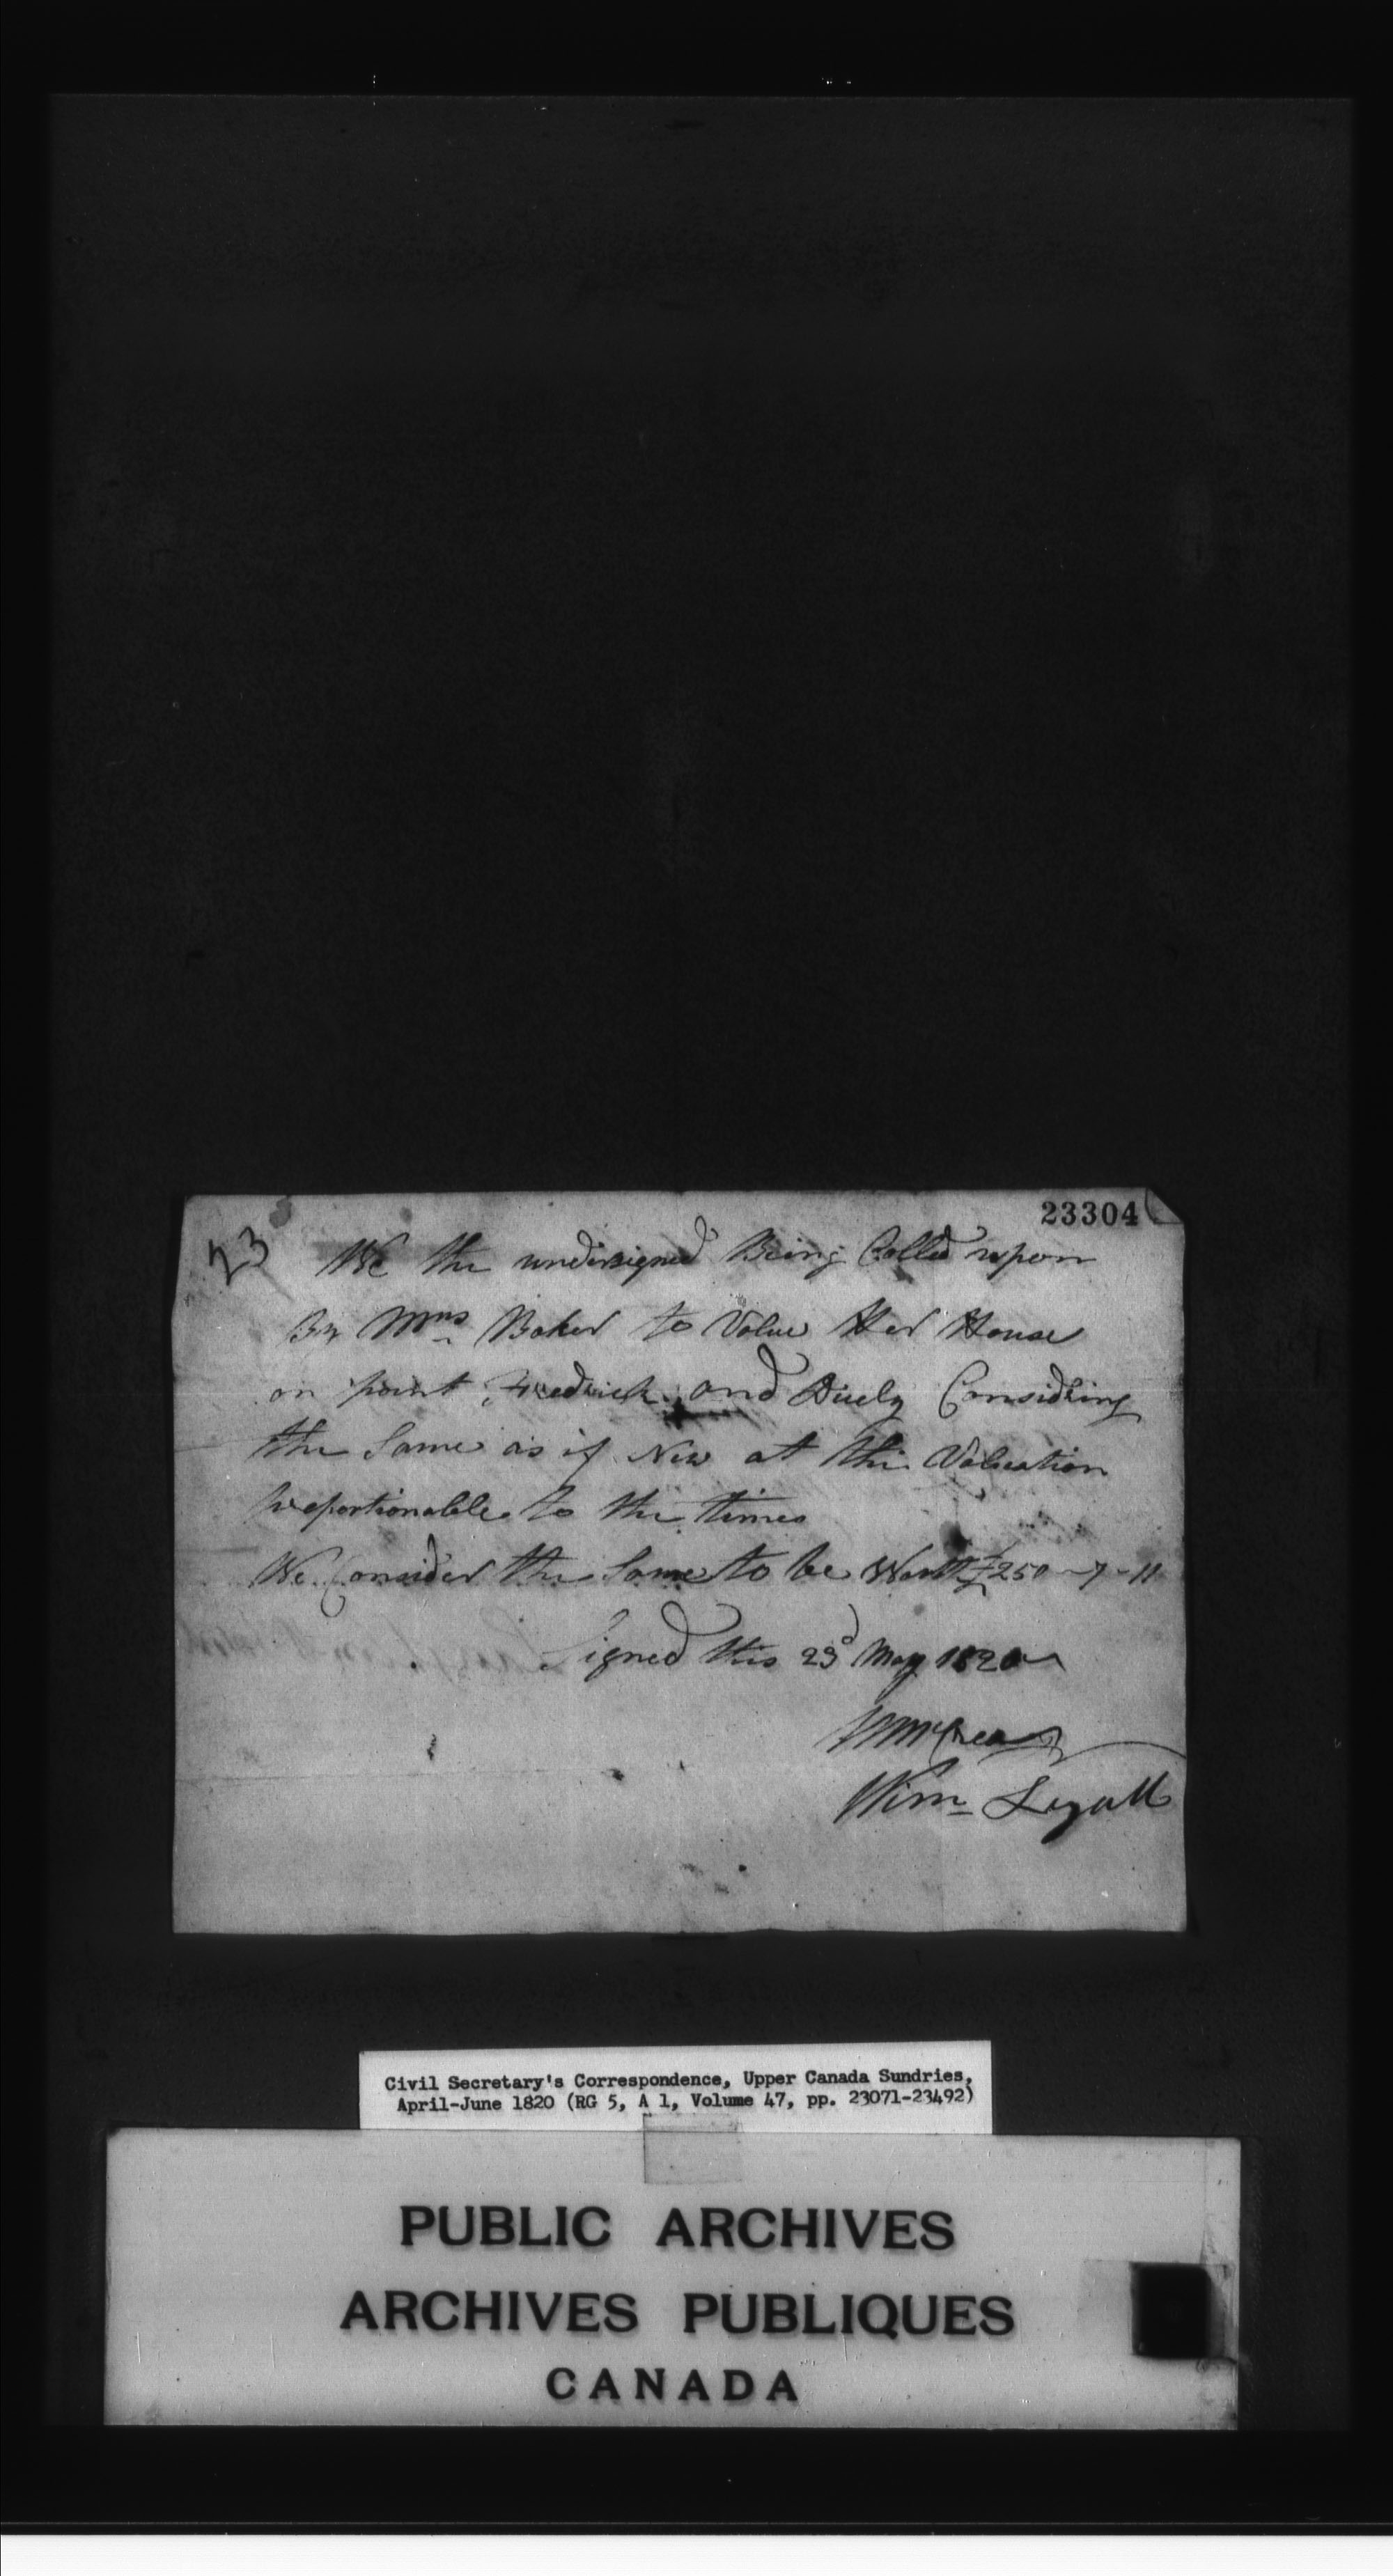 23304
23
We the undersigned Being Called upon
By Mrs Baker to Value Her House
on point Fredrick and Duely Considring
the Same as if New at the Valuation
proportionable to the times
We Consider the Same to be Worth £250-7-11
Signed this 23d May 1820
Wm Lyall
Civil Secretary's Correspondence, Upper Canada Sundries,
April-June 1820 (RG 5, A 1, Volume 47, pp. 23071-23492)
PUBLIC ARCHIVES
ARCHIVES PUBLIQUES
CANADA